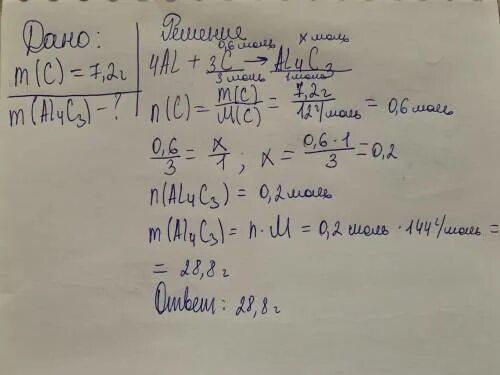 Дано:
m(C) = 7,2г
m(Al4C3) - ?
Решение
0,6 моль x моль
4Al + 3C → Al4C3
3 моль 1 моль
n(C) = m(C)/M(C) = 7,2г/12г/моль = 0,6 моль
0,6/3 = x/1 ; x = 0,6·1/3 = 0,2
n(Al4C3) = 0,2 моль
m(Al4C3) = n·M = 0,2 моль · 144г/моль =
= 28,8г
Ответ: 28,8г